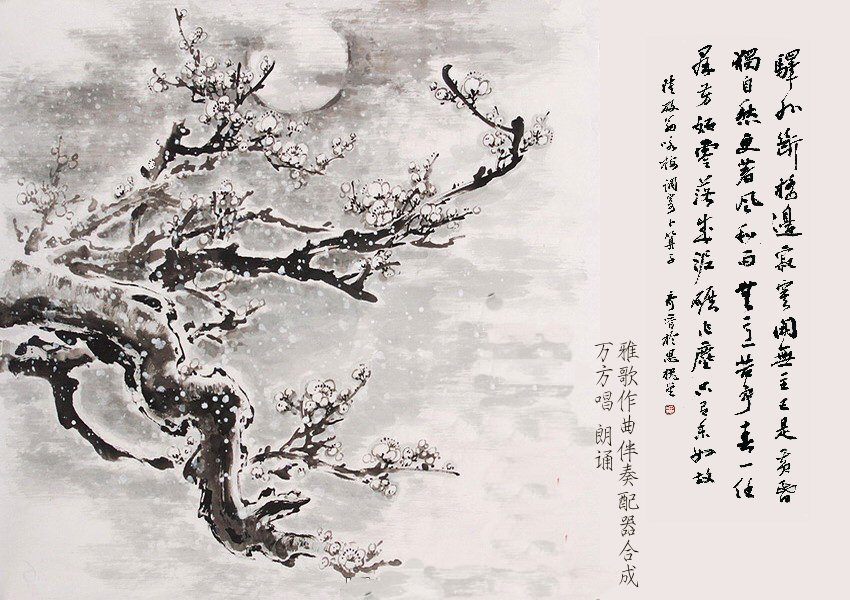 驛外斷橋邊寂寞開無主已是黃昏
獨自愁更著風和雨無意苦爭春一任
群芳妒零落成泥碾作塵只有香如故
陸放翁咏梅調寄卜算子
雅歌作曲伴奏配器合成
万方唱 朗诵